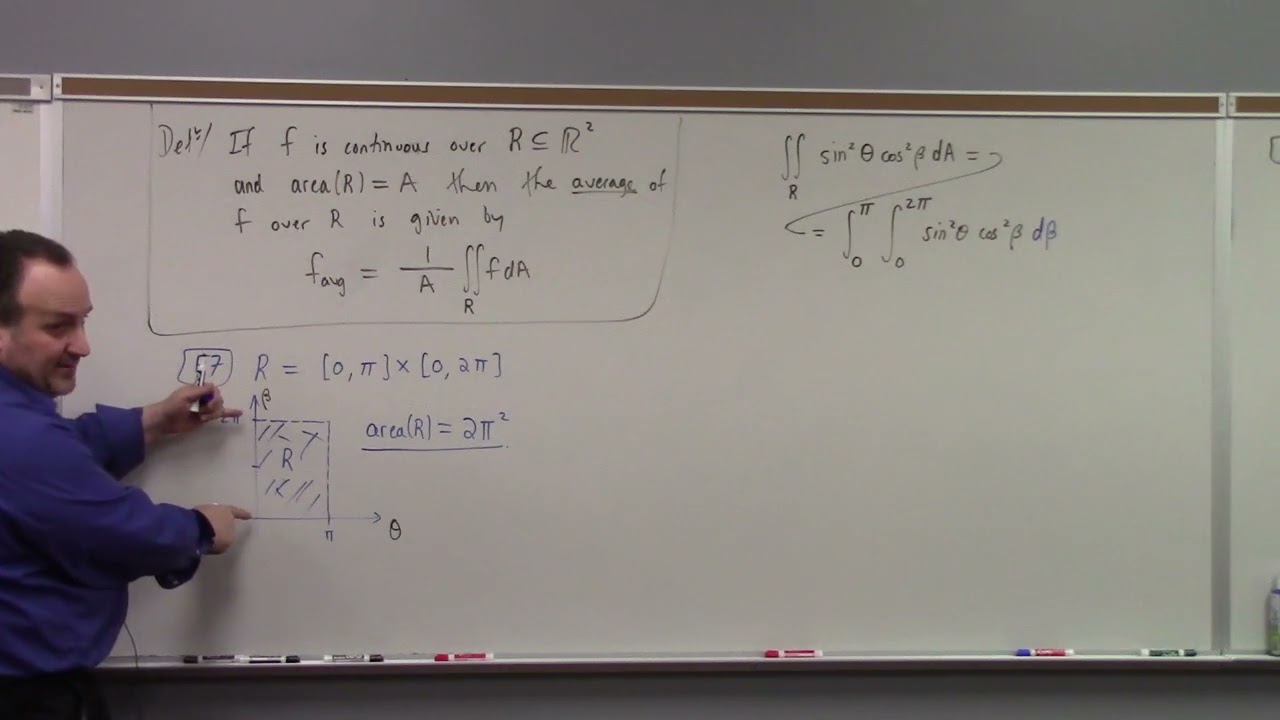 Defⁿ/ If f is continuous over R ⊆ ℝ²
and area(R) = A then the average of
f over R is given by
f_avg = 1/A ∬_R f dA
57 R = [0, π] × [0, 2π]
β
2π
area(R) = 2π²
R
π
θ
∬_R sin²θ cos²β dA =
= ∫_0^π ∫_0^2π sin²θ cos²β dβ